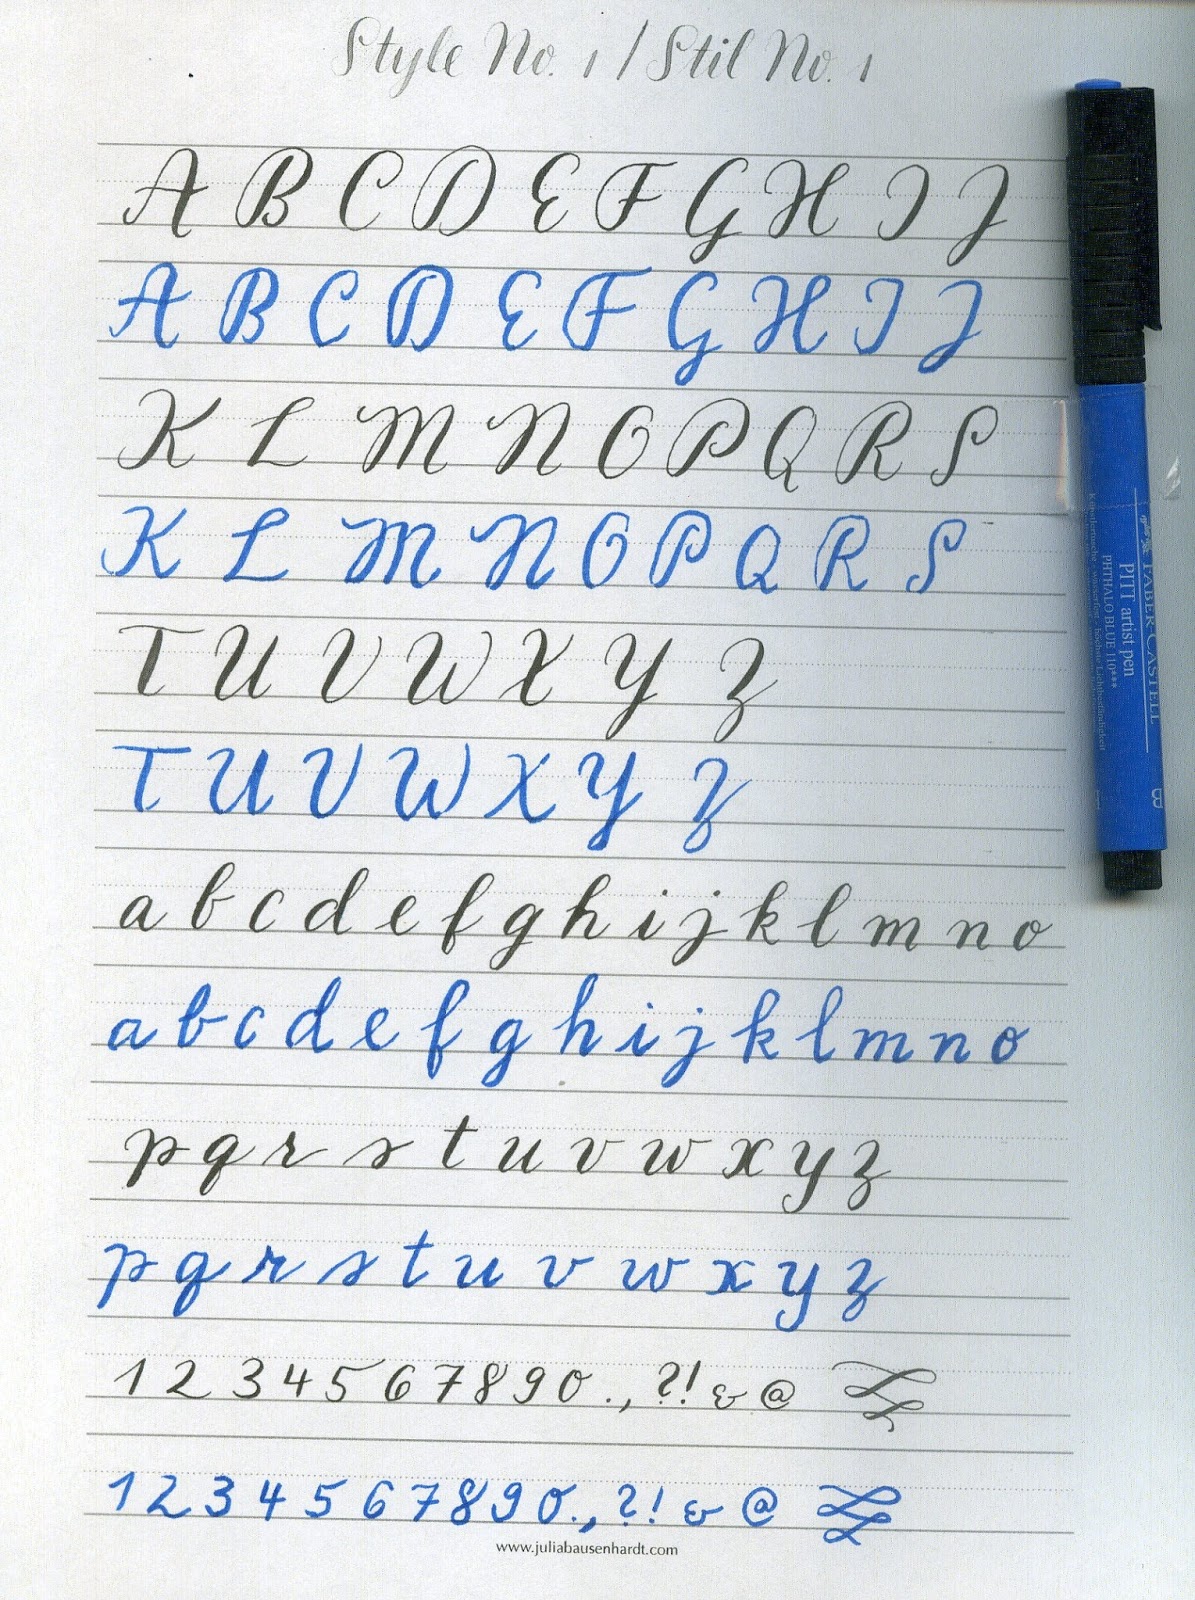 Style No. 1 / Stil No. 1
A B C D E F G H I J
A B C D E F G H I J
K L M N O P Q R S
K L M N O P Q R S
T U V W X Y Z
T U V W X Y Z
a b c d e f g h i j k l m n o
a b c d e f g h i j k l m n o
p q r s t u v w x y z
p q r s t u v w x y z
1 2 3 4 5 6 7 8 9 0 . , ? ! & @
1 2 3 4 5 6 7 8 9 0 . , ? ! & @
www.juliabausenhardt.com
FABER-CASTELL
PITT artist pen
PHTHALO BLUE 110***
B